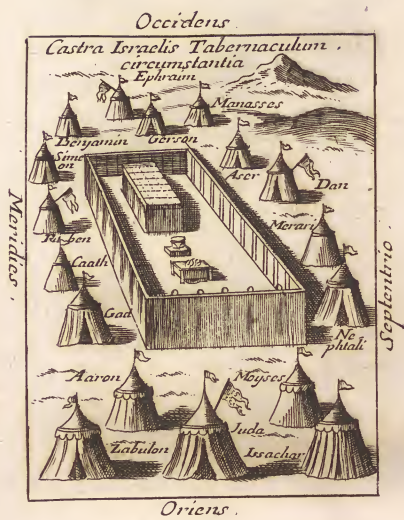 Occidens.
Castra Israelis Tabernaculum.
circumstantia
Ephraim
Manasses
Benyamin
Gerson
Sime
on
Aser
Dan
Ruben
Merari
Caath
Gad
Ne
phtali
Aaron
Moyses
Juda
Zabulon
Issachar
Meridies.
Septentrio.
Oriens.